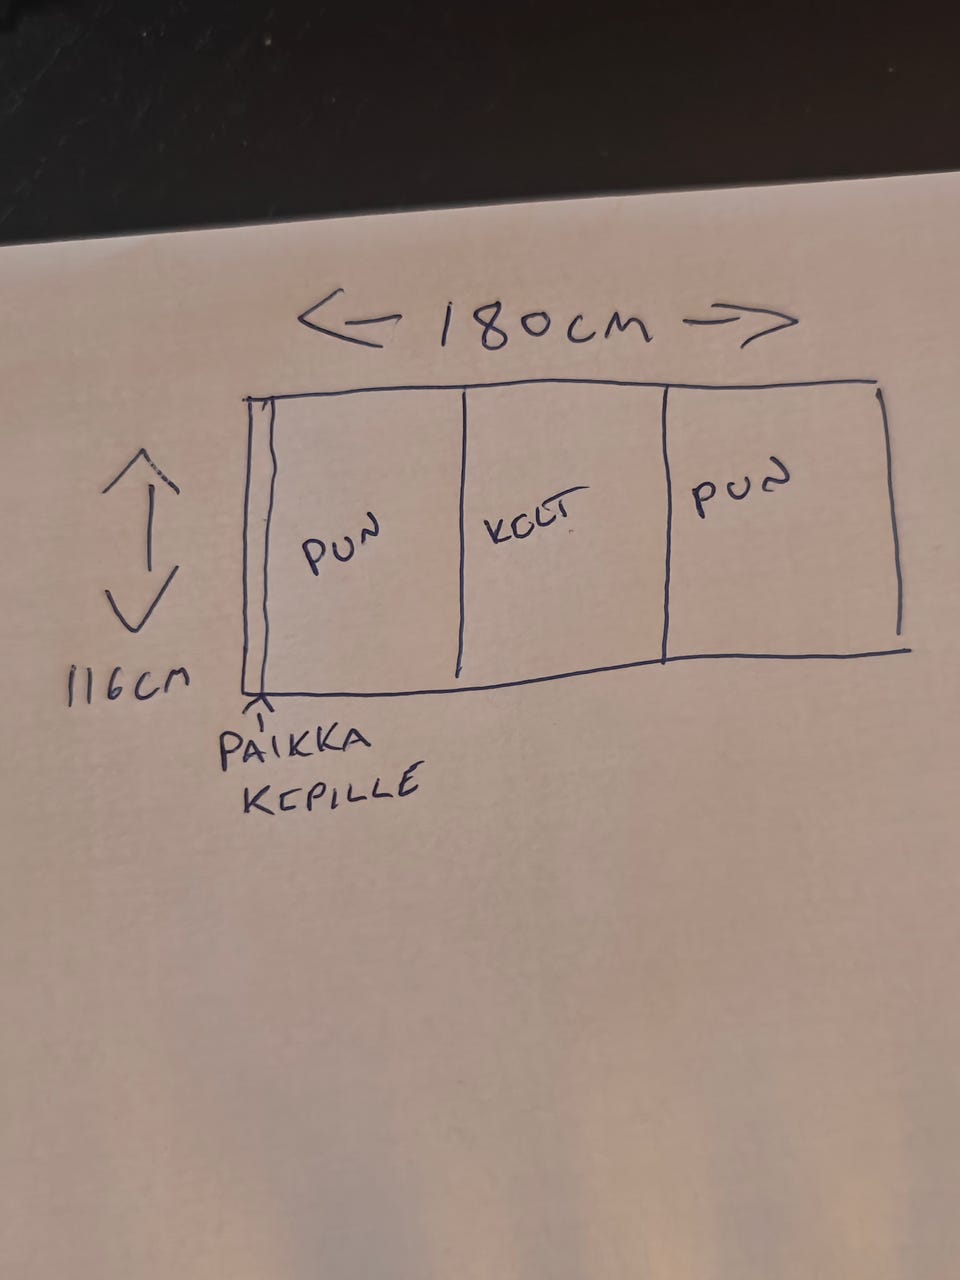 180CM
PUN
KELT
PUN
116CM
PAIKKA
KEPILLE